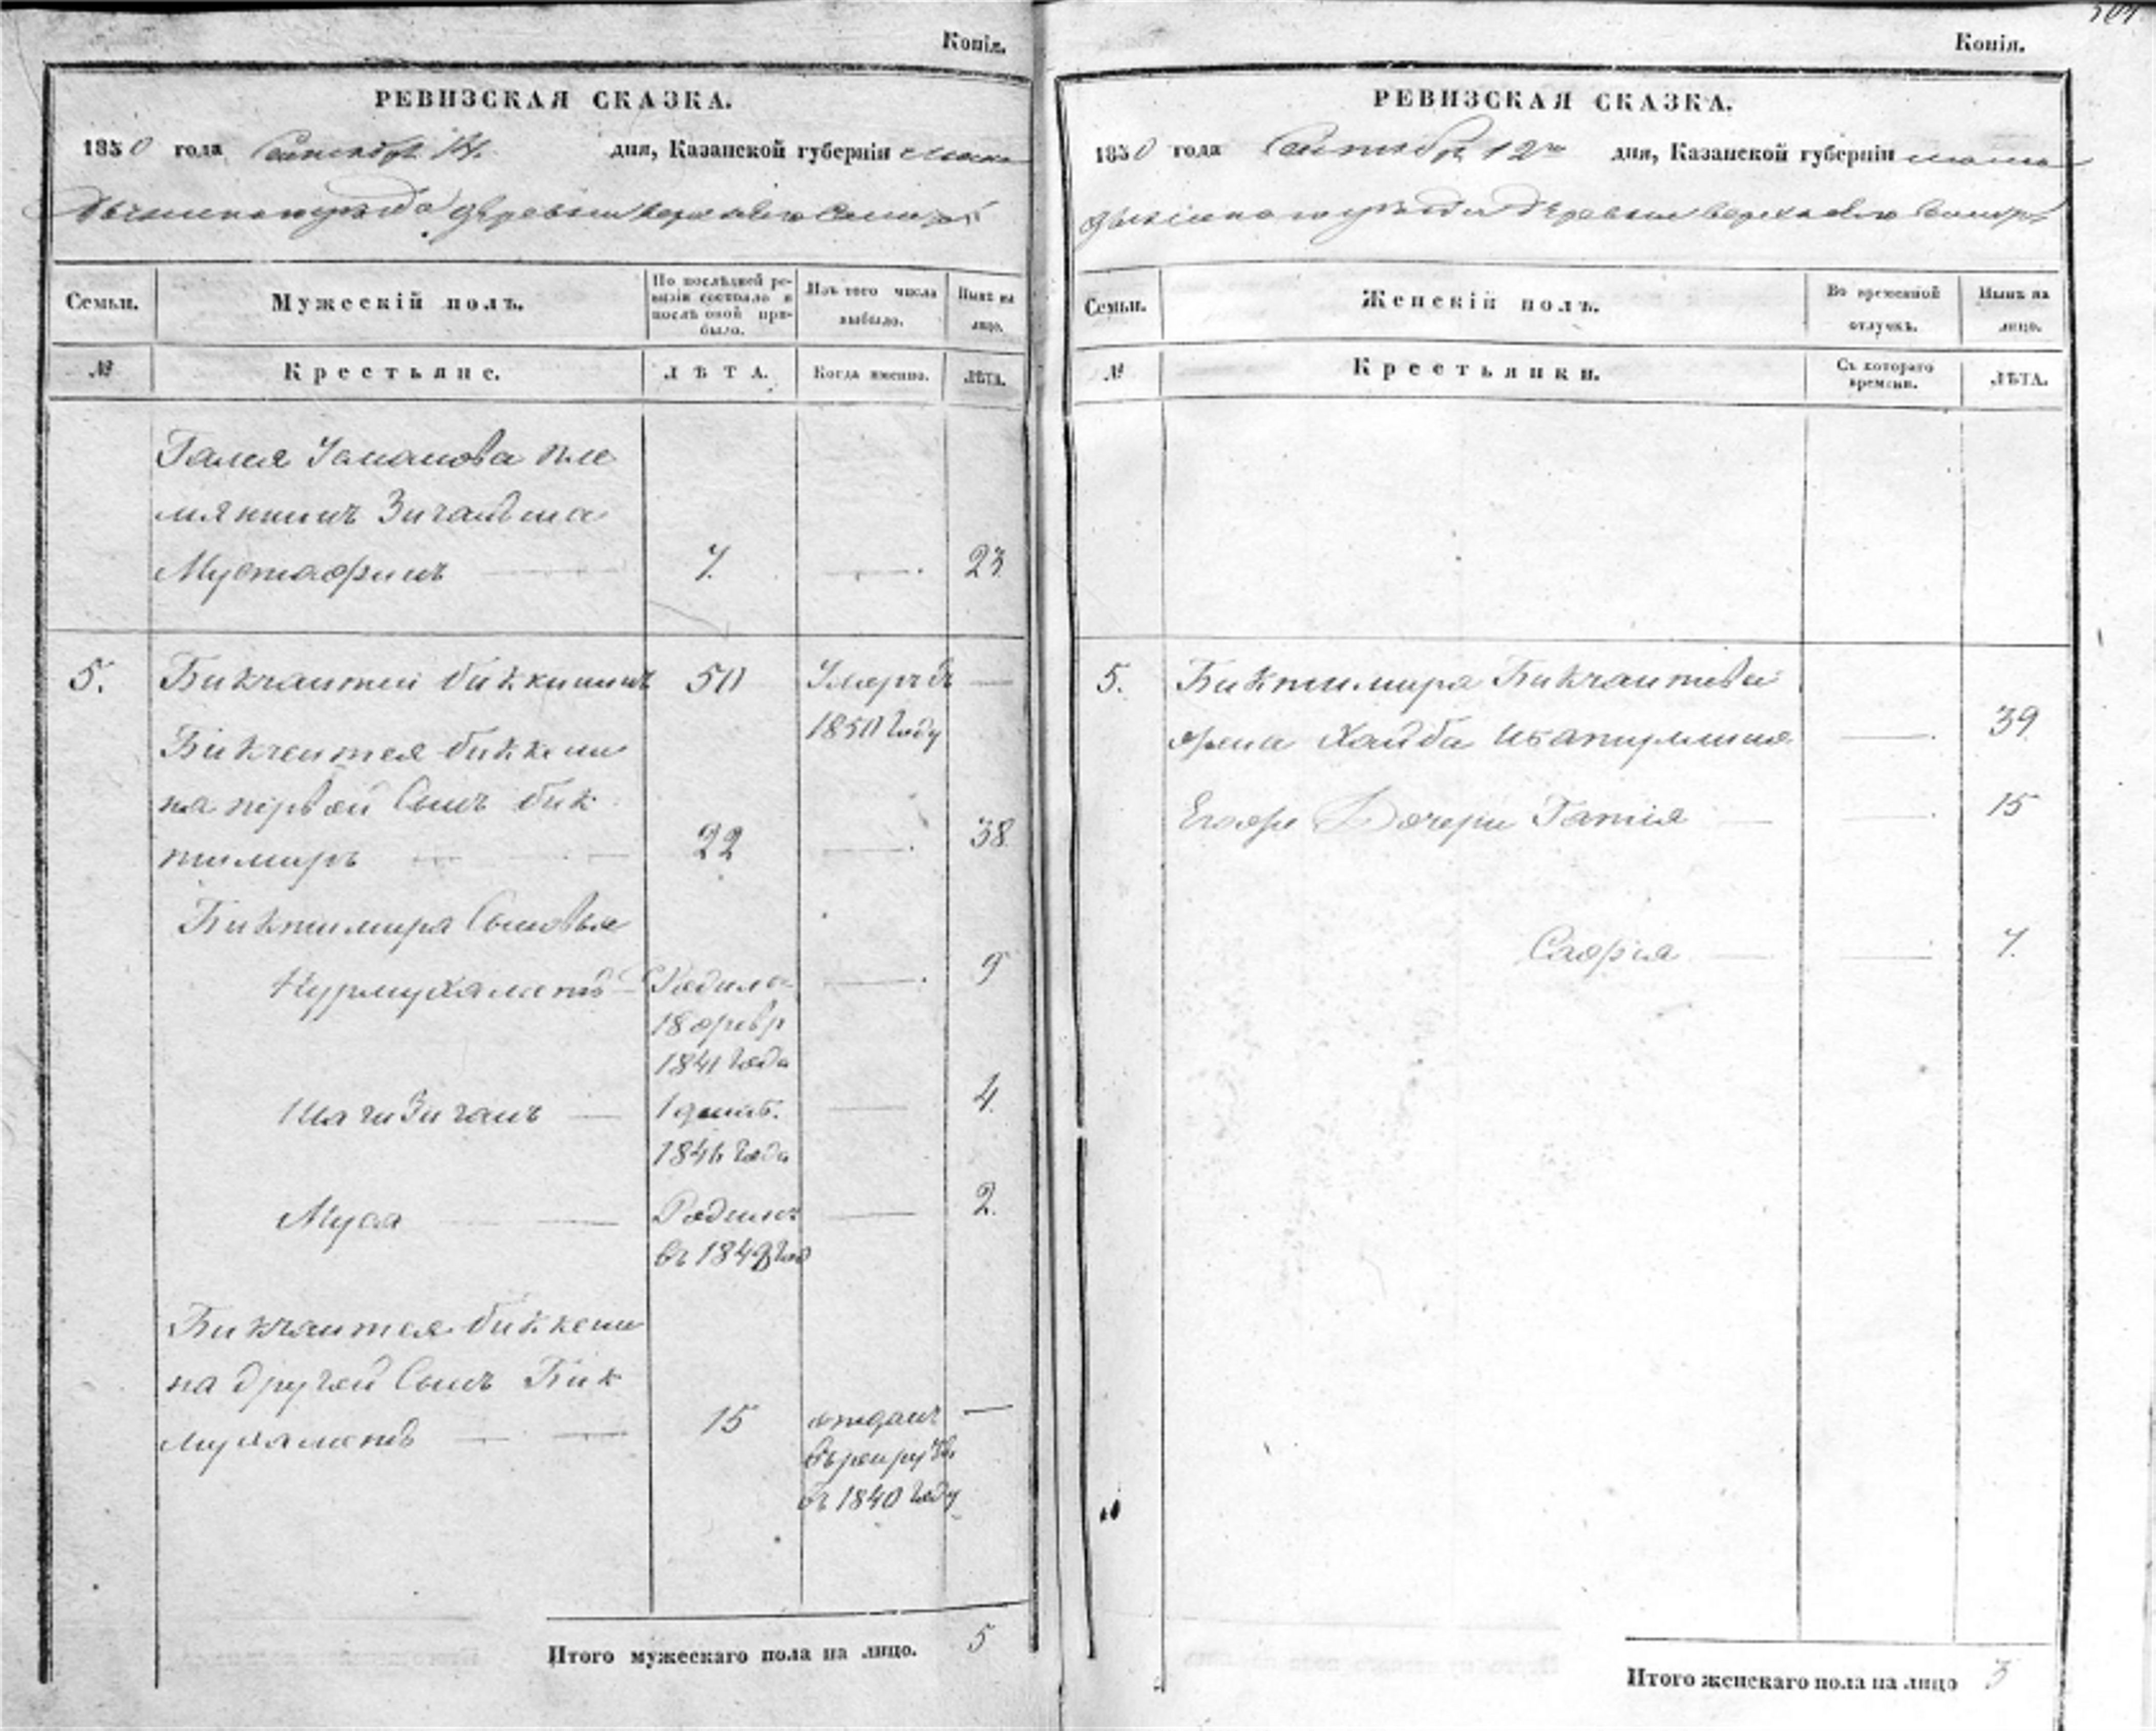 Копія.
РЕВИЗСКАЯ СКАЗКА.
1850 года Сентября дня, Казанской губерніи Мама
дышскаго уезда деревни
Семьи. Мужескій полъ. По послѣдней ревизіи состояло и послѣ оной прибыло. Изъ того числа выбыло. Нынѣ на лицо.
№ Крестьяне. ЛѢТА. Когда именно. ЛѢТА.
Галея Усманова пле
мянникъ Зигангина
Мустафинъ 7. 23
5. Бикчантей биккининъ 50 Умеръ въ
1850 году
Бикчантея биккени
на первой Сынъ бик
тимиръ 22 38
Биктимира Сыновья
Нурмухаметъ Родился 9
18 февр
1841 года
Шагизиганъ 1 4.
года
Муса Родился 2.
въ 1848 год
Бикчантея биккени
на другой Сынъ Бик
мухаметъ 15 отданъ
въ рекруты
въ 1840 году
Итого мужескаго пола на лицо. 5
Копія.
РЕВИЗСКАЯ СКАЗКА.
1850 года Сентября 12го дня, Казанской губерніи мама
дышскаго уезда деревни
Семьи. Женскій полъ. Во временной отлучкѣ. Нынѣ на лицо.
№ Крестьянки. Съ котораго времени. ЛѢТА.
5. Биктимира Бикчантева
жена Хамба 39
Егоже Дочери Гатія 15
Софія 7.
Итого женскаго пола на лицо 3